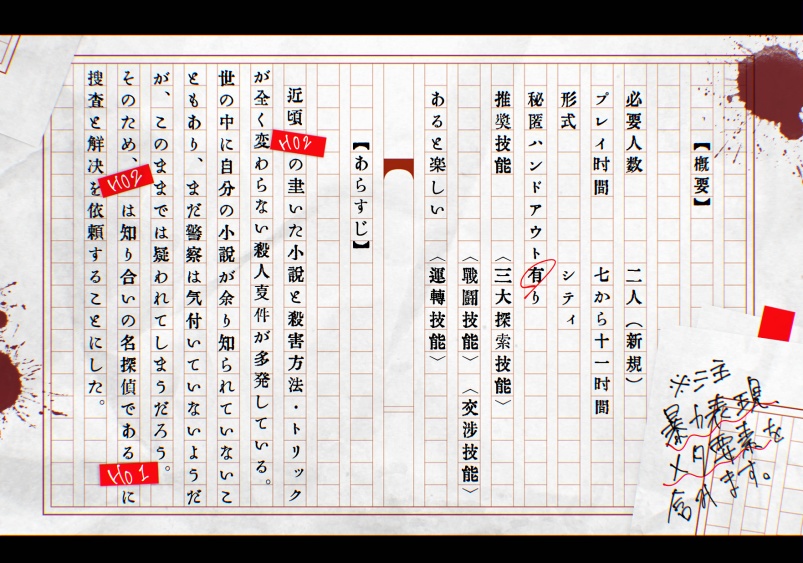 【概要】
必要人数 二人(新規)
プレイ時間 七から十一時間
形式 シティ
秘匿ハンドアウト有り
推奨技能 〈三大探索技能〉
〈戦闘技能〉〈交渉技能〉
あると楽しい 〈運轉技能〉
【あらすじ】
近頃HO2の書いた小説と殺害方法・トリック
が全く変わらない殺人事件が多発している。
世の中に自分の小説が余り知られていないこ
ともあり、まだ警察は気付いていないようだ
が、このままでは疑われてしまうだろう。
そのため、HO2は知り合いの名探偵であるHO1に
捜査と解決を依頼することにした。
※ニ主
暴力表現
メタ要素を
含みます。